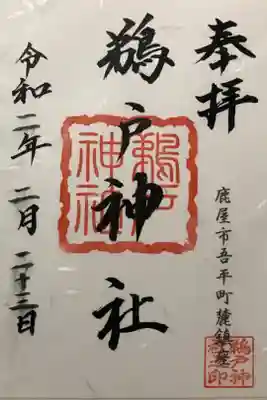 奉拝
鹿屋市吾平町麓鎮座
鵜戸神社
鵜戸
神社
令和二年二月二十三日